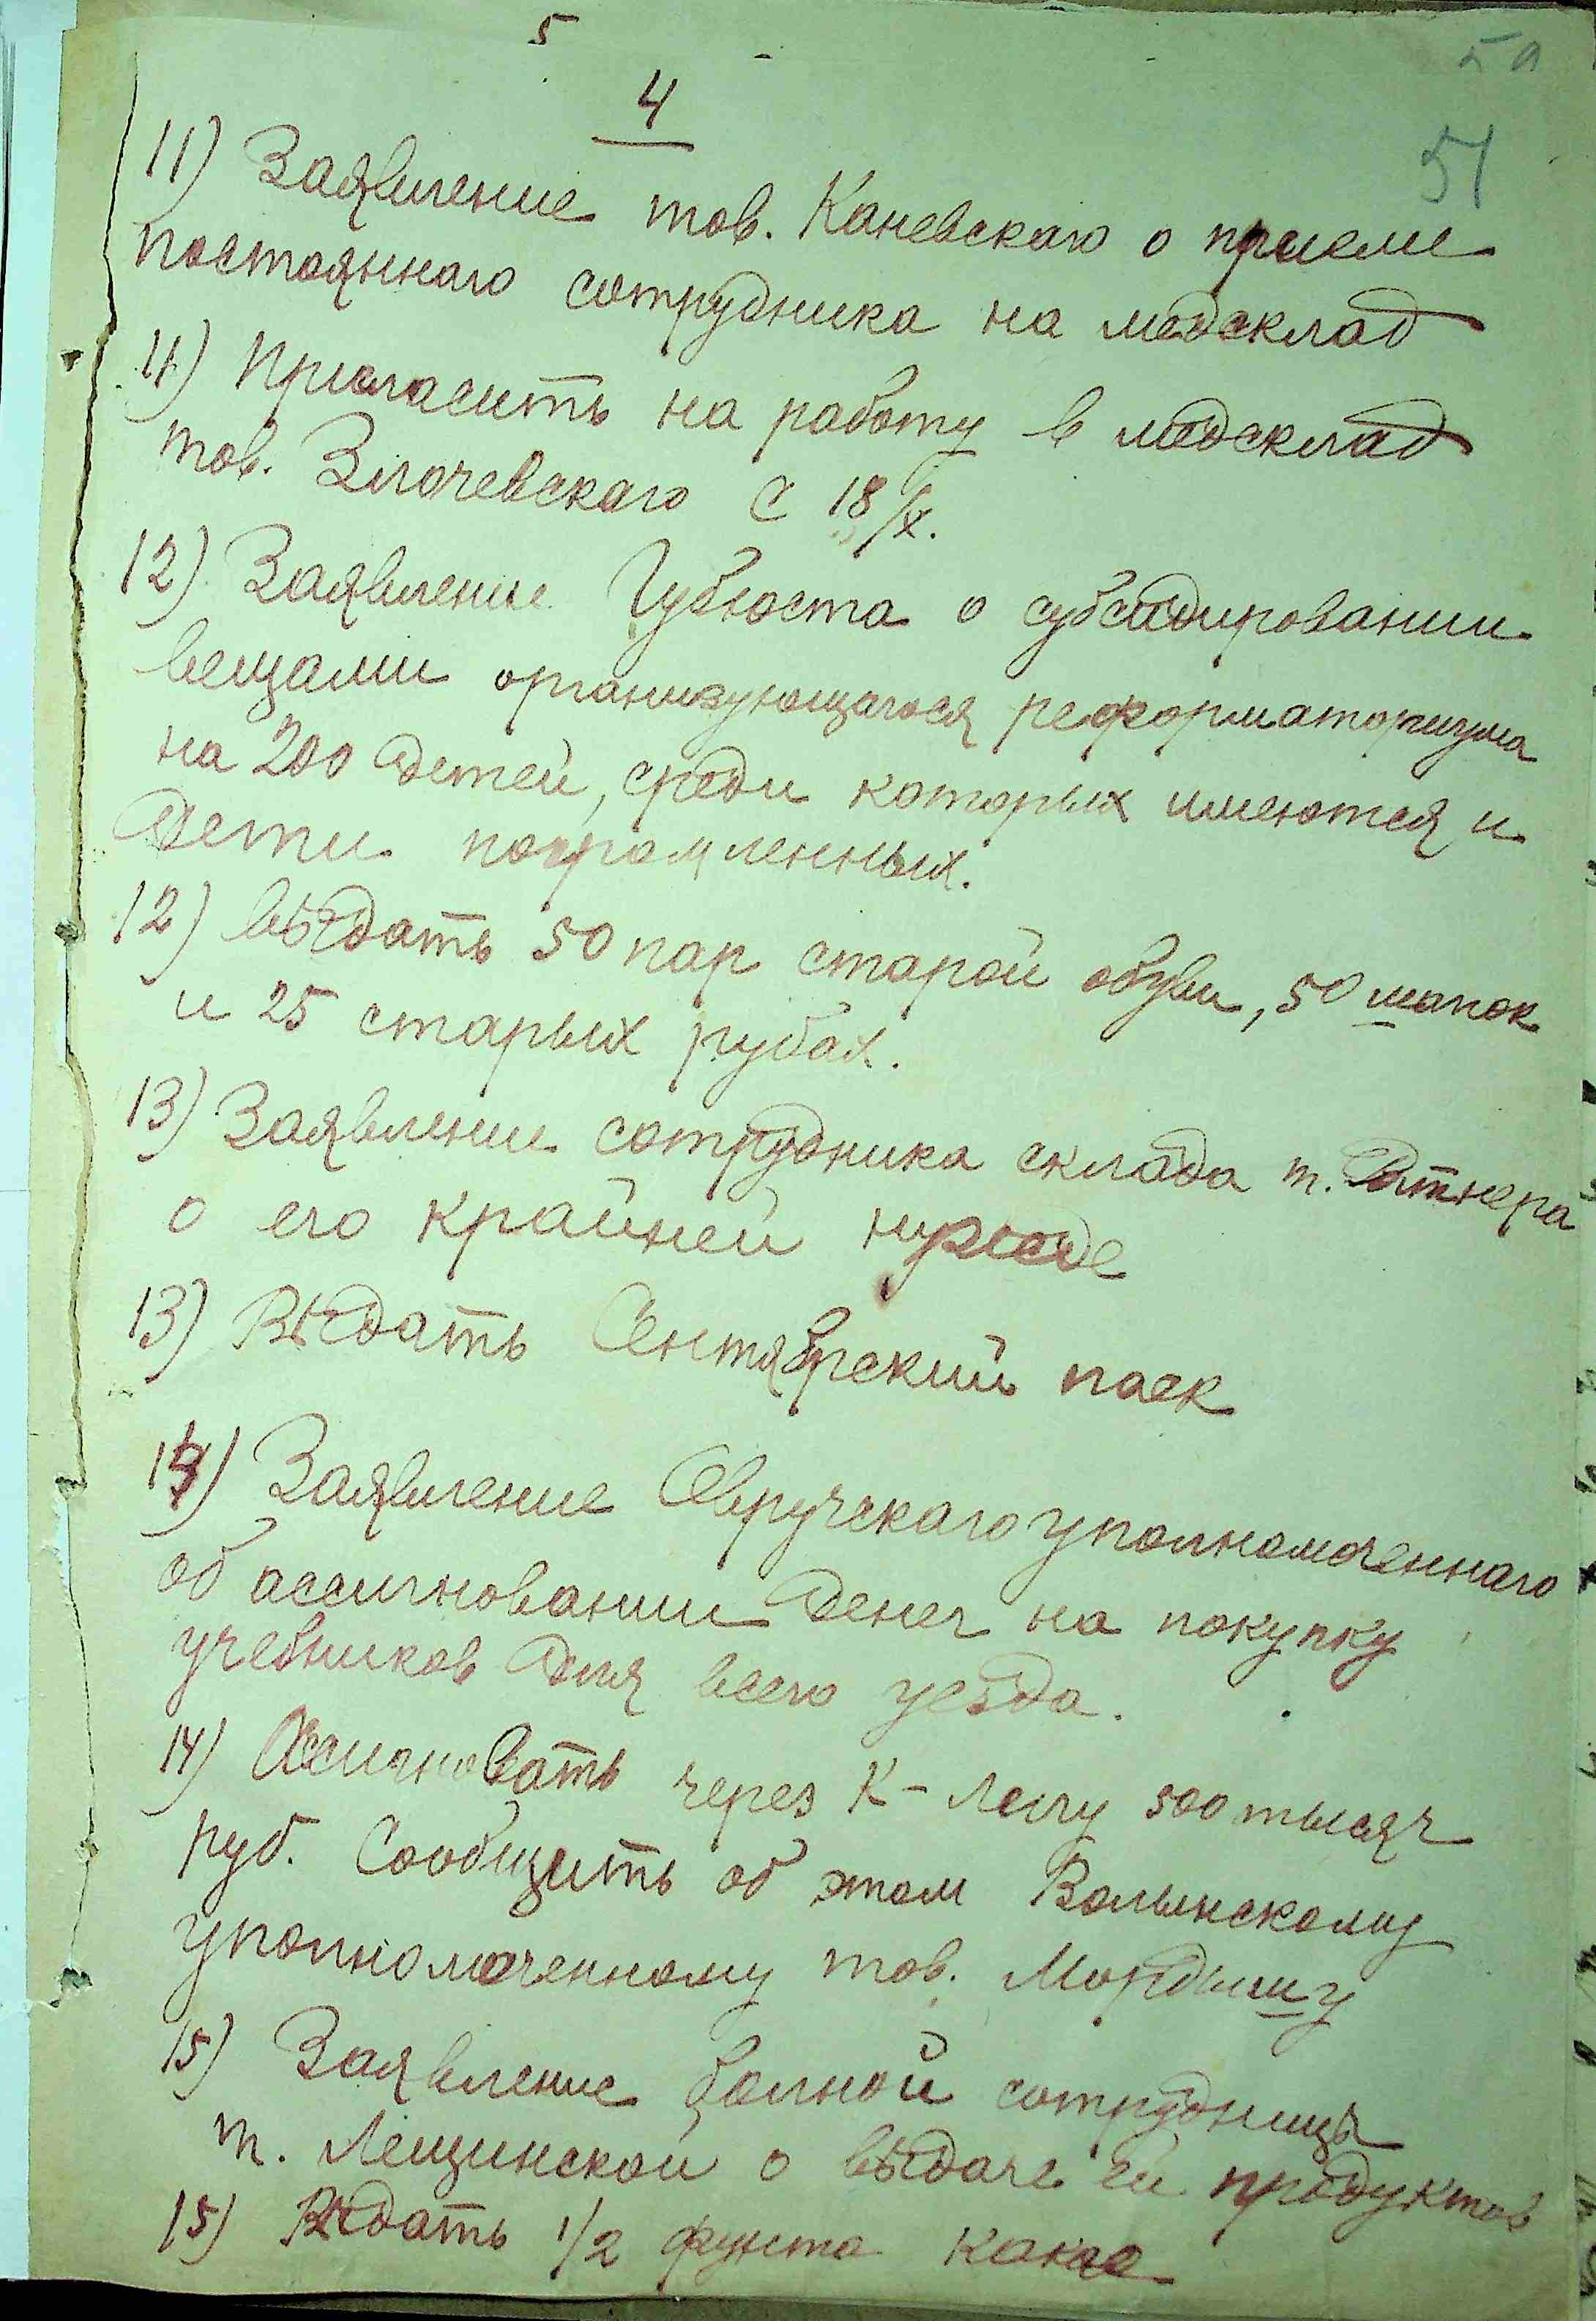 5
4
51
11) Заявление тов. Каневскаго о приеме
постояннаго сотрудника на медсклад
11) Пригласить на работу в медсклад
тов. Злочевскаго с 18/X.
12) Заявление Губюста о субсидировании
вещами организующагося реформаториума
на 200 детей, среди которых имеются и
дети погромленных.
12) Выдать 50 пар старой обуви, 50 шапок
и 25 старых рубах.
13) Заявление сотрудника склада т. Ратнера
о его крайней нужде
13) Выдать Сентябрский паек
14) Заявление Овручскаго уполномоченнаго
об ассигновании денег на покупку
учебников для всего уезда.
14) Ассигновать через К-Лигу 500 тысяч
руб. Сообщить об этом Волынскому
уполномоченному тов. Мордышу
15) Заявление больной сотрудницы
т. Лещинской о выдаче ей продуктов
15) Выдать 1/2 фунта какао